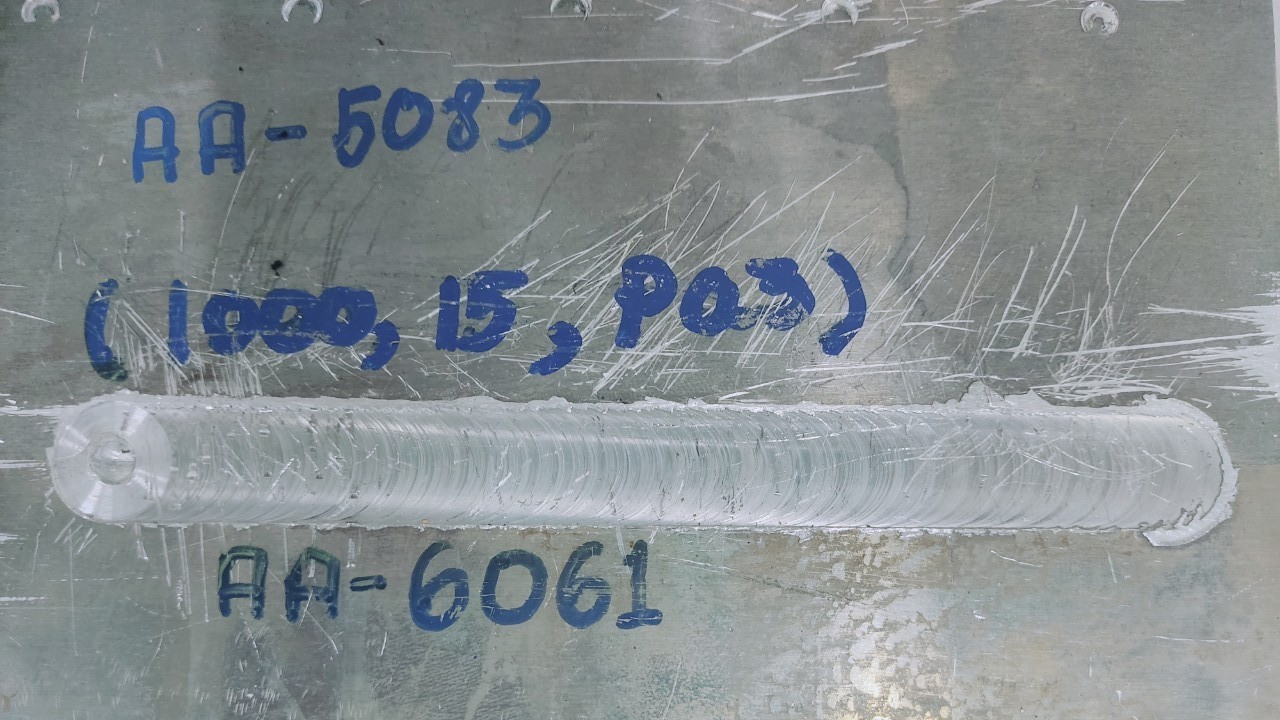 AA-5083
(1000, 15, Pa3)
AA-6061